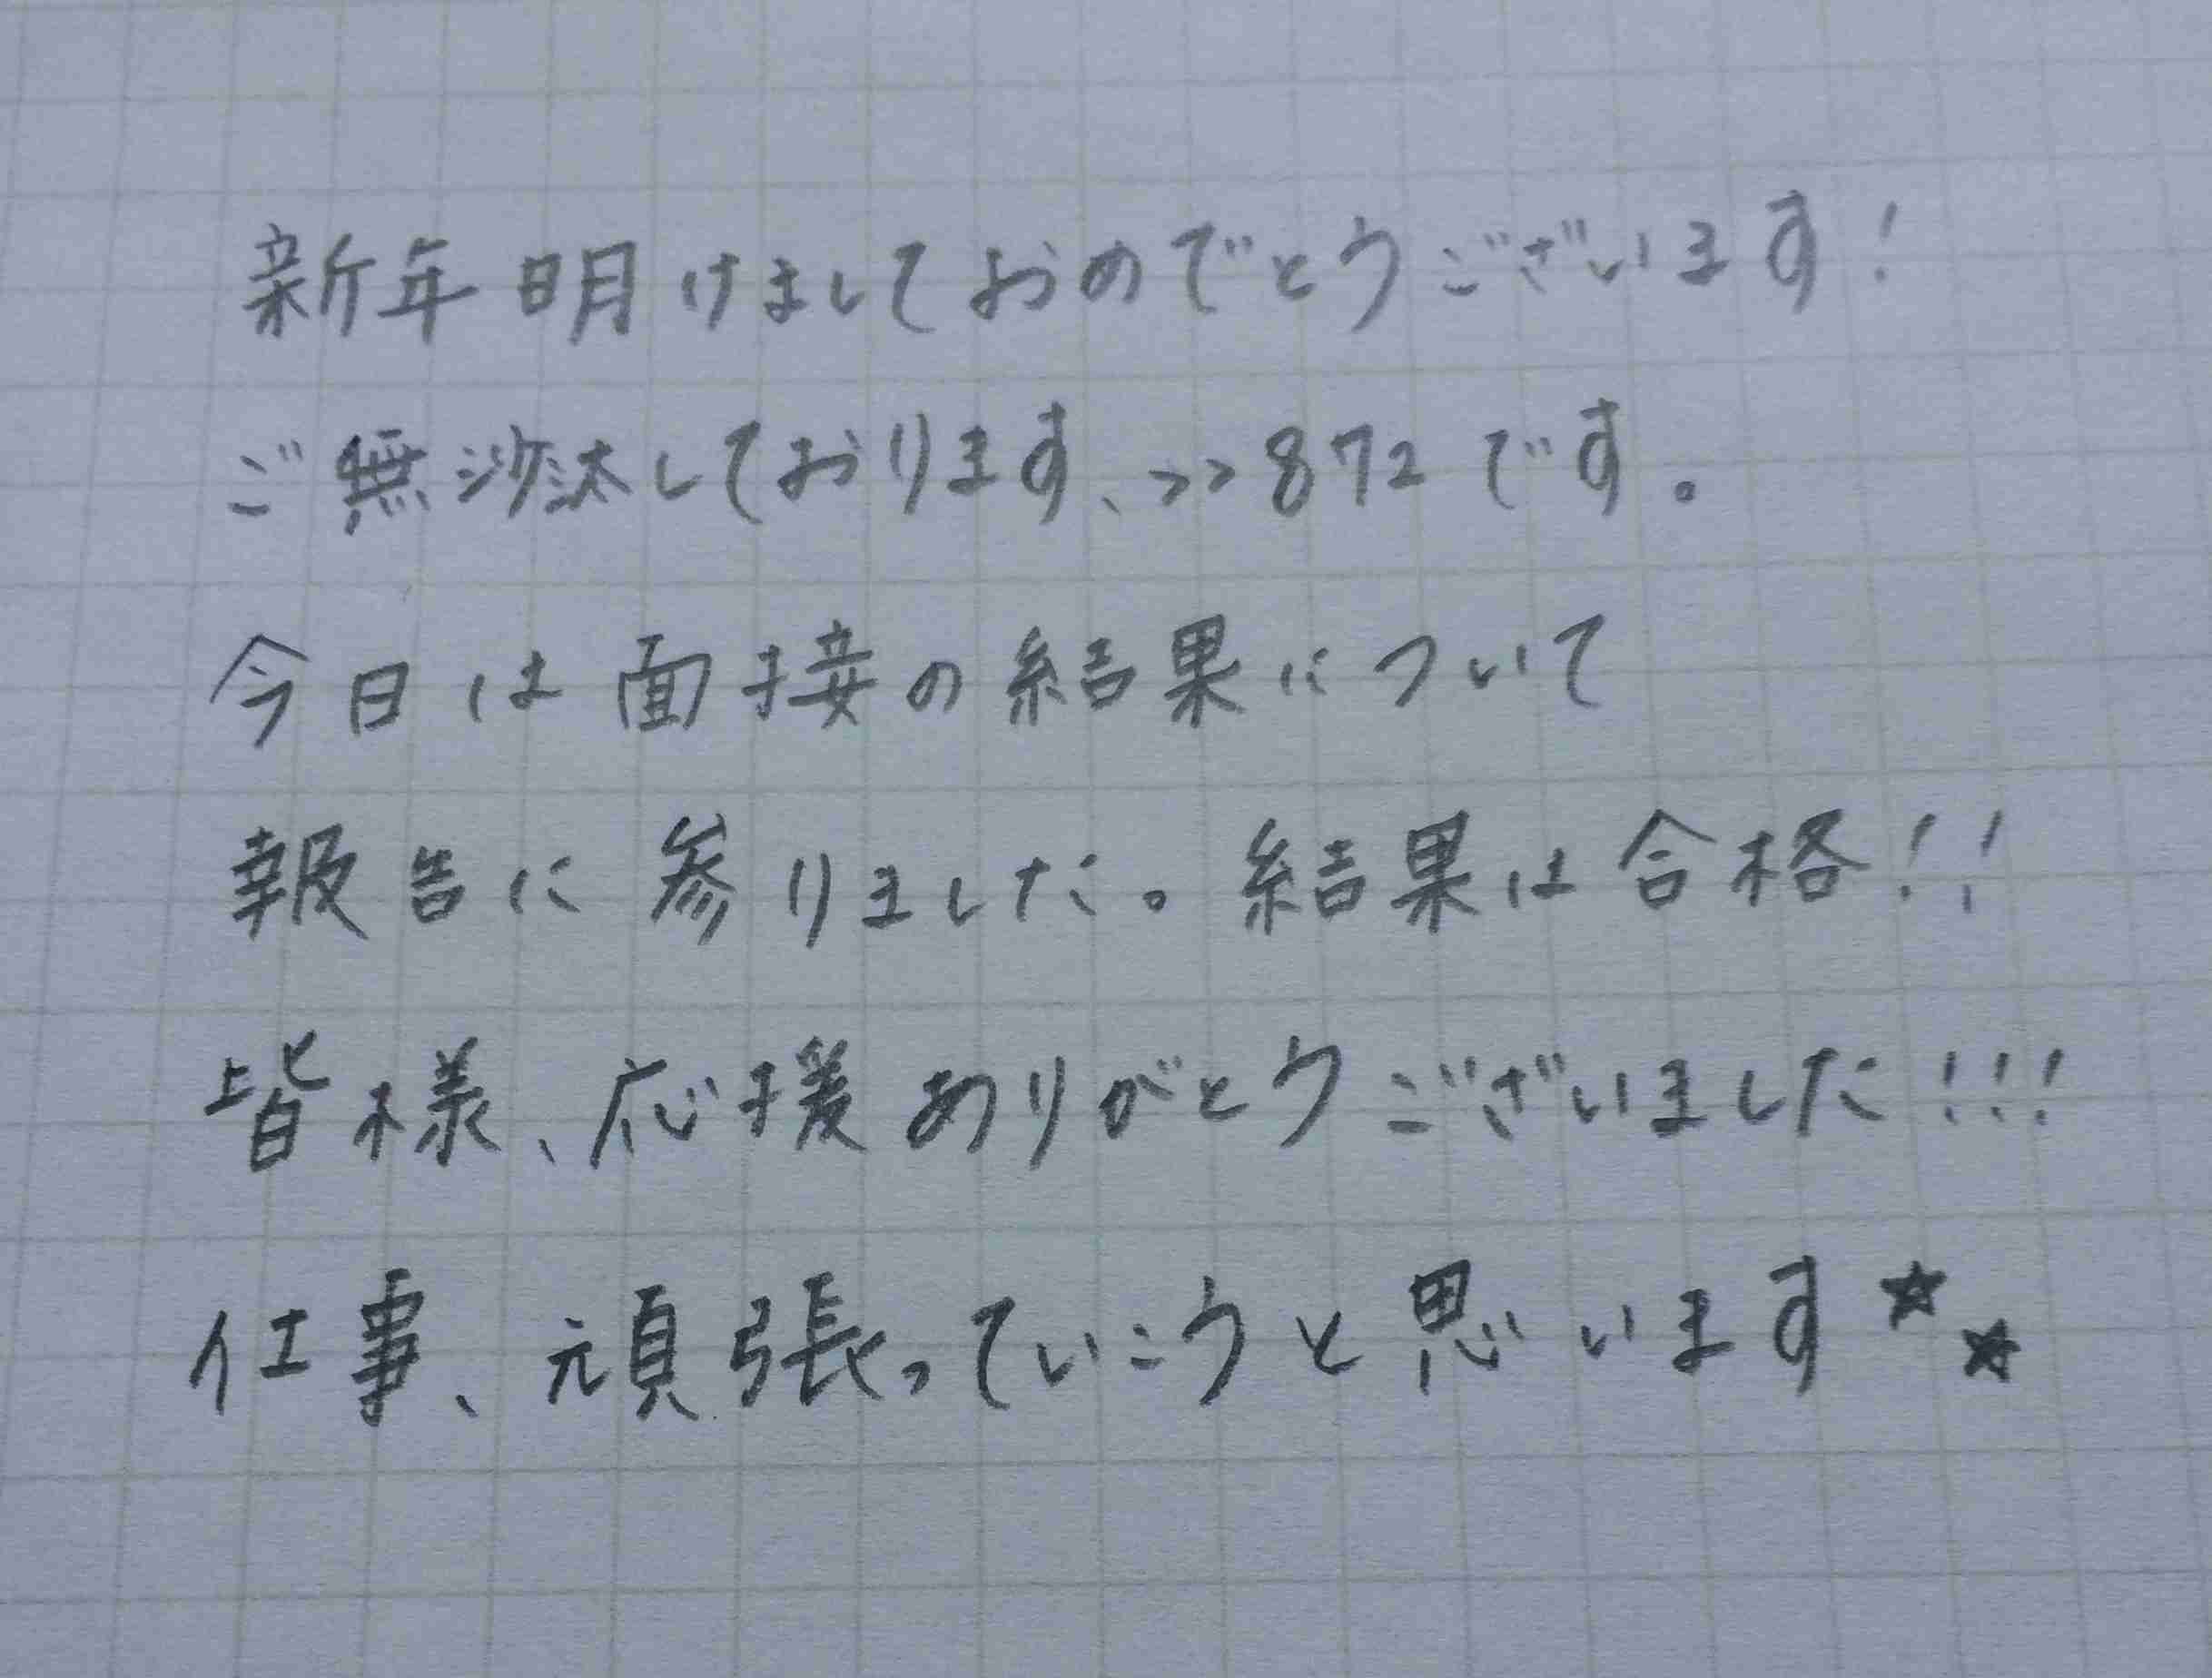 新年明けましておめでとうございます！
ご無沙汰しております、>>872です。
今日は面接の結果について
報告に参りました。結果は合格！！
皆様、応援ありがとうございました！！！
仕事、頑張っていこうと思います★★